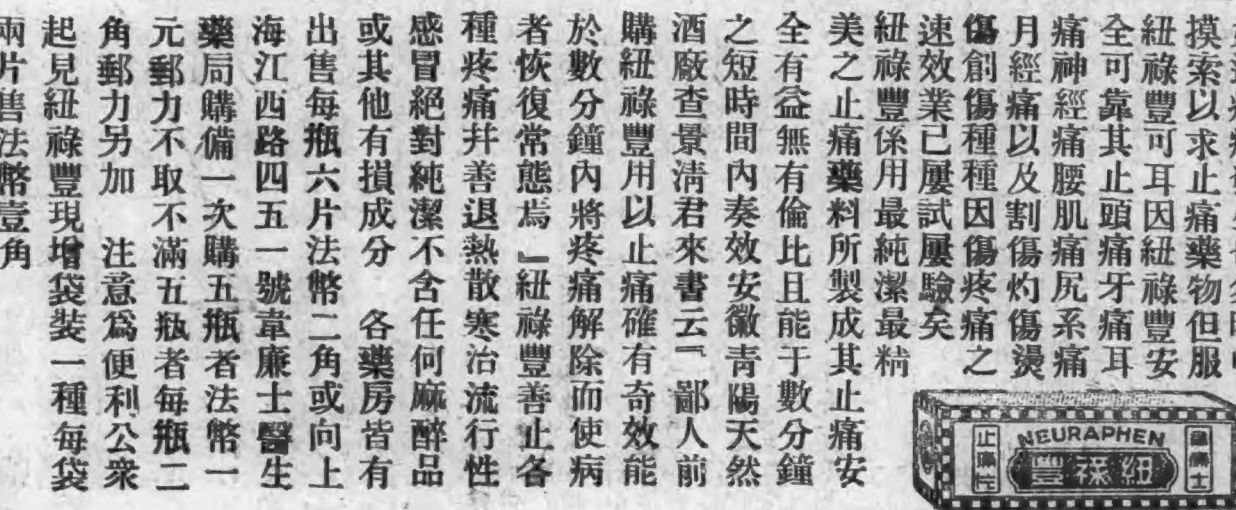 摸索以求止痛藥物但服
紐祿豐可耳因紐祿豐安
全可靠其止頭痛牙痛耳
痛神經痛腰肌痛尻系痛
月經痛以及割傷灼傷燙
傷創傷種種因傷疼痛之
速效業已屢試屢驗矣
紐祿豐係用最純潔最精
美之止痛藥料所製成其止痛安
全有益無有倫比且能于數分鐘
之短時間內奏效安徽靑陽天然
酒廠查景淸君來書云『鄙人前
購紐祿豐用以止痛確有奇效能
於數分鐘內將疼痛解除而使病
者恢復常態焉』紐祿豐善止各
種疼痛并善退熱散寒治流行性
感冒絕對純潔不含任何麻醉品
或其他有損成分 各藥房皆有
出售每瓶六片法幣二角或向上
海江西路四五一號韋廉士醫生
藥局購備一次購五瓶者法幣一
元郵力不取不滿五瓶者每瓶二
角郵力另加 注意爲便利公衆
起見紐祿豐現增袋裝一種每袋
兩片售法幣壹角
NEURAPHEN
紐祿豐
止痛片